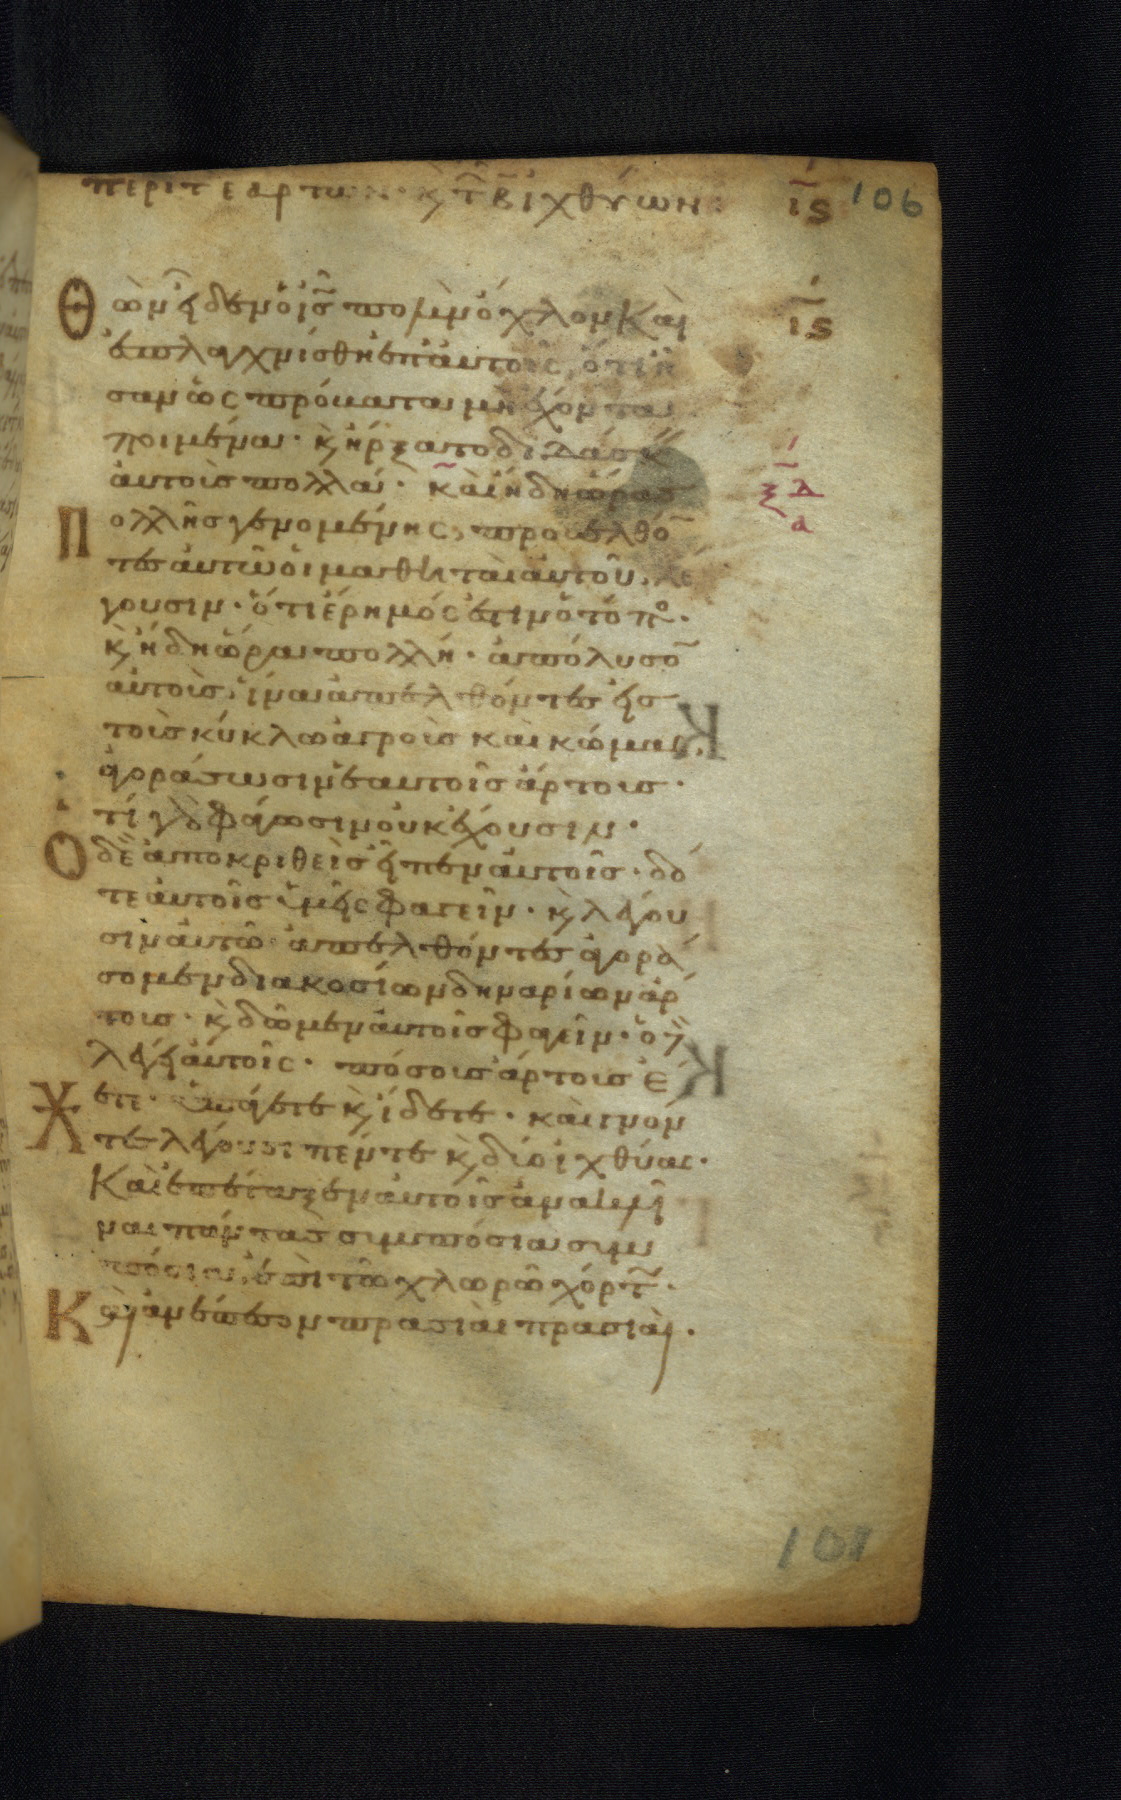 περι τ ε αρτων· κ τ β ιχθύων: ις 106
ις
ὼν εἶδεν ὁ ις πολὺν ὄχλον Καὶ
ἐσπλαχνίσθη ἐπ αὐτοῖς, ὅτι ἦ
σαν ὡς πρόβατα μὴ ἔχοντα
ποιμένα· κ ἤρξατο διδάσκειν
αὐτοὺς πολλά· καὶ ἤδη ὥρας
ξδ
α
Πολλῆς γενομένης, προσελθό
τες αὐτῶ οἱ μαθηταὶ αὐτοῦ, λέ
γουσιν· ὅτι ἔρημός ἐστιν ὁ τόπο·
κ ἤδη ὥρα πολλή· ἀπόλυσο
αὐτοὺς, ἵνα ἀπελθόντες εἰς
τοὺς κύκλω ἀγροὺς καὶ κώμας,
ἀγοράσωσιν ἑαυτοῖς ἄρτους·
τί γὰρ φάγωσιν οὐκ ἔχουσιν·
Ὁ δὲ ἀποκριθεὶς εἶπεν αὐτοῖς· δό
τε αὐτοῖς ὑμεῖς φαγεῖν· κ λέγου
σιν αὐτῶ· ἀπελθόντες ἀγορά
σομεν διακοσίων δηναρίων ἄρ
τους· κ δῶμεν αὐτοῖς φαγεῖν· ὁ δὲ
λέγει αὐτοῖς· πόσους ἄρτους ἔ
χετε· ὑπάγετε κ ἴδετε· καὶ γνόν
τες λέγουσι πέντε κ δύο ἰχθύας·
Καὶ ἐπέταξεν αὐτοῖς ἀνακλῖ
ναι πάντας συμπόσια συμ
πόσια, ἐπὶ τῶ χλωρῶ χόρτ·
Καὶ ἀνέπεσον πρασιαὶ πρασιαὶ·
101